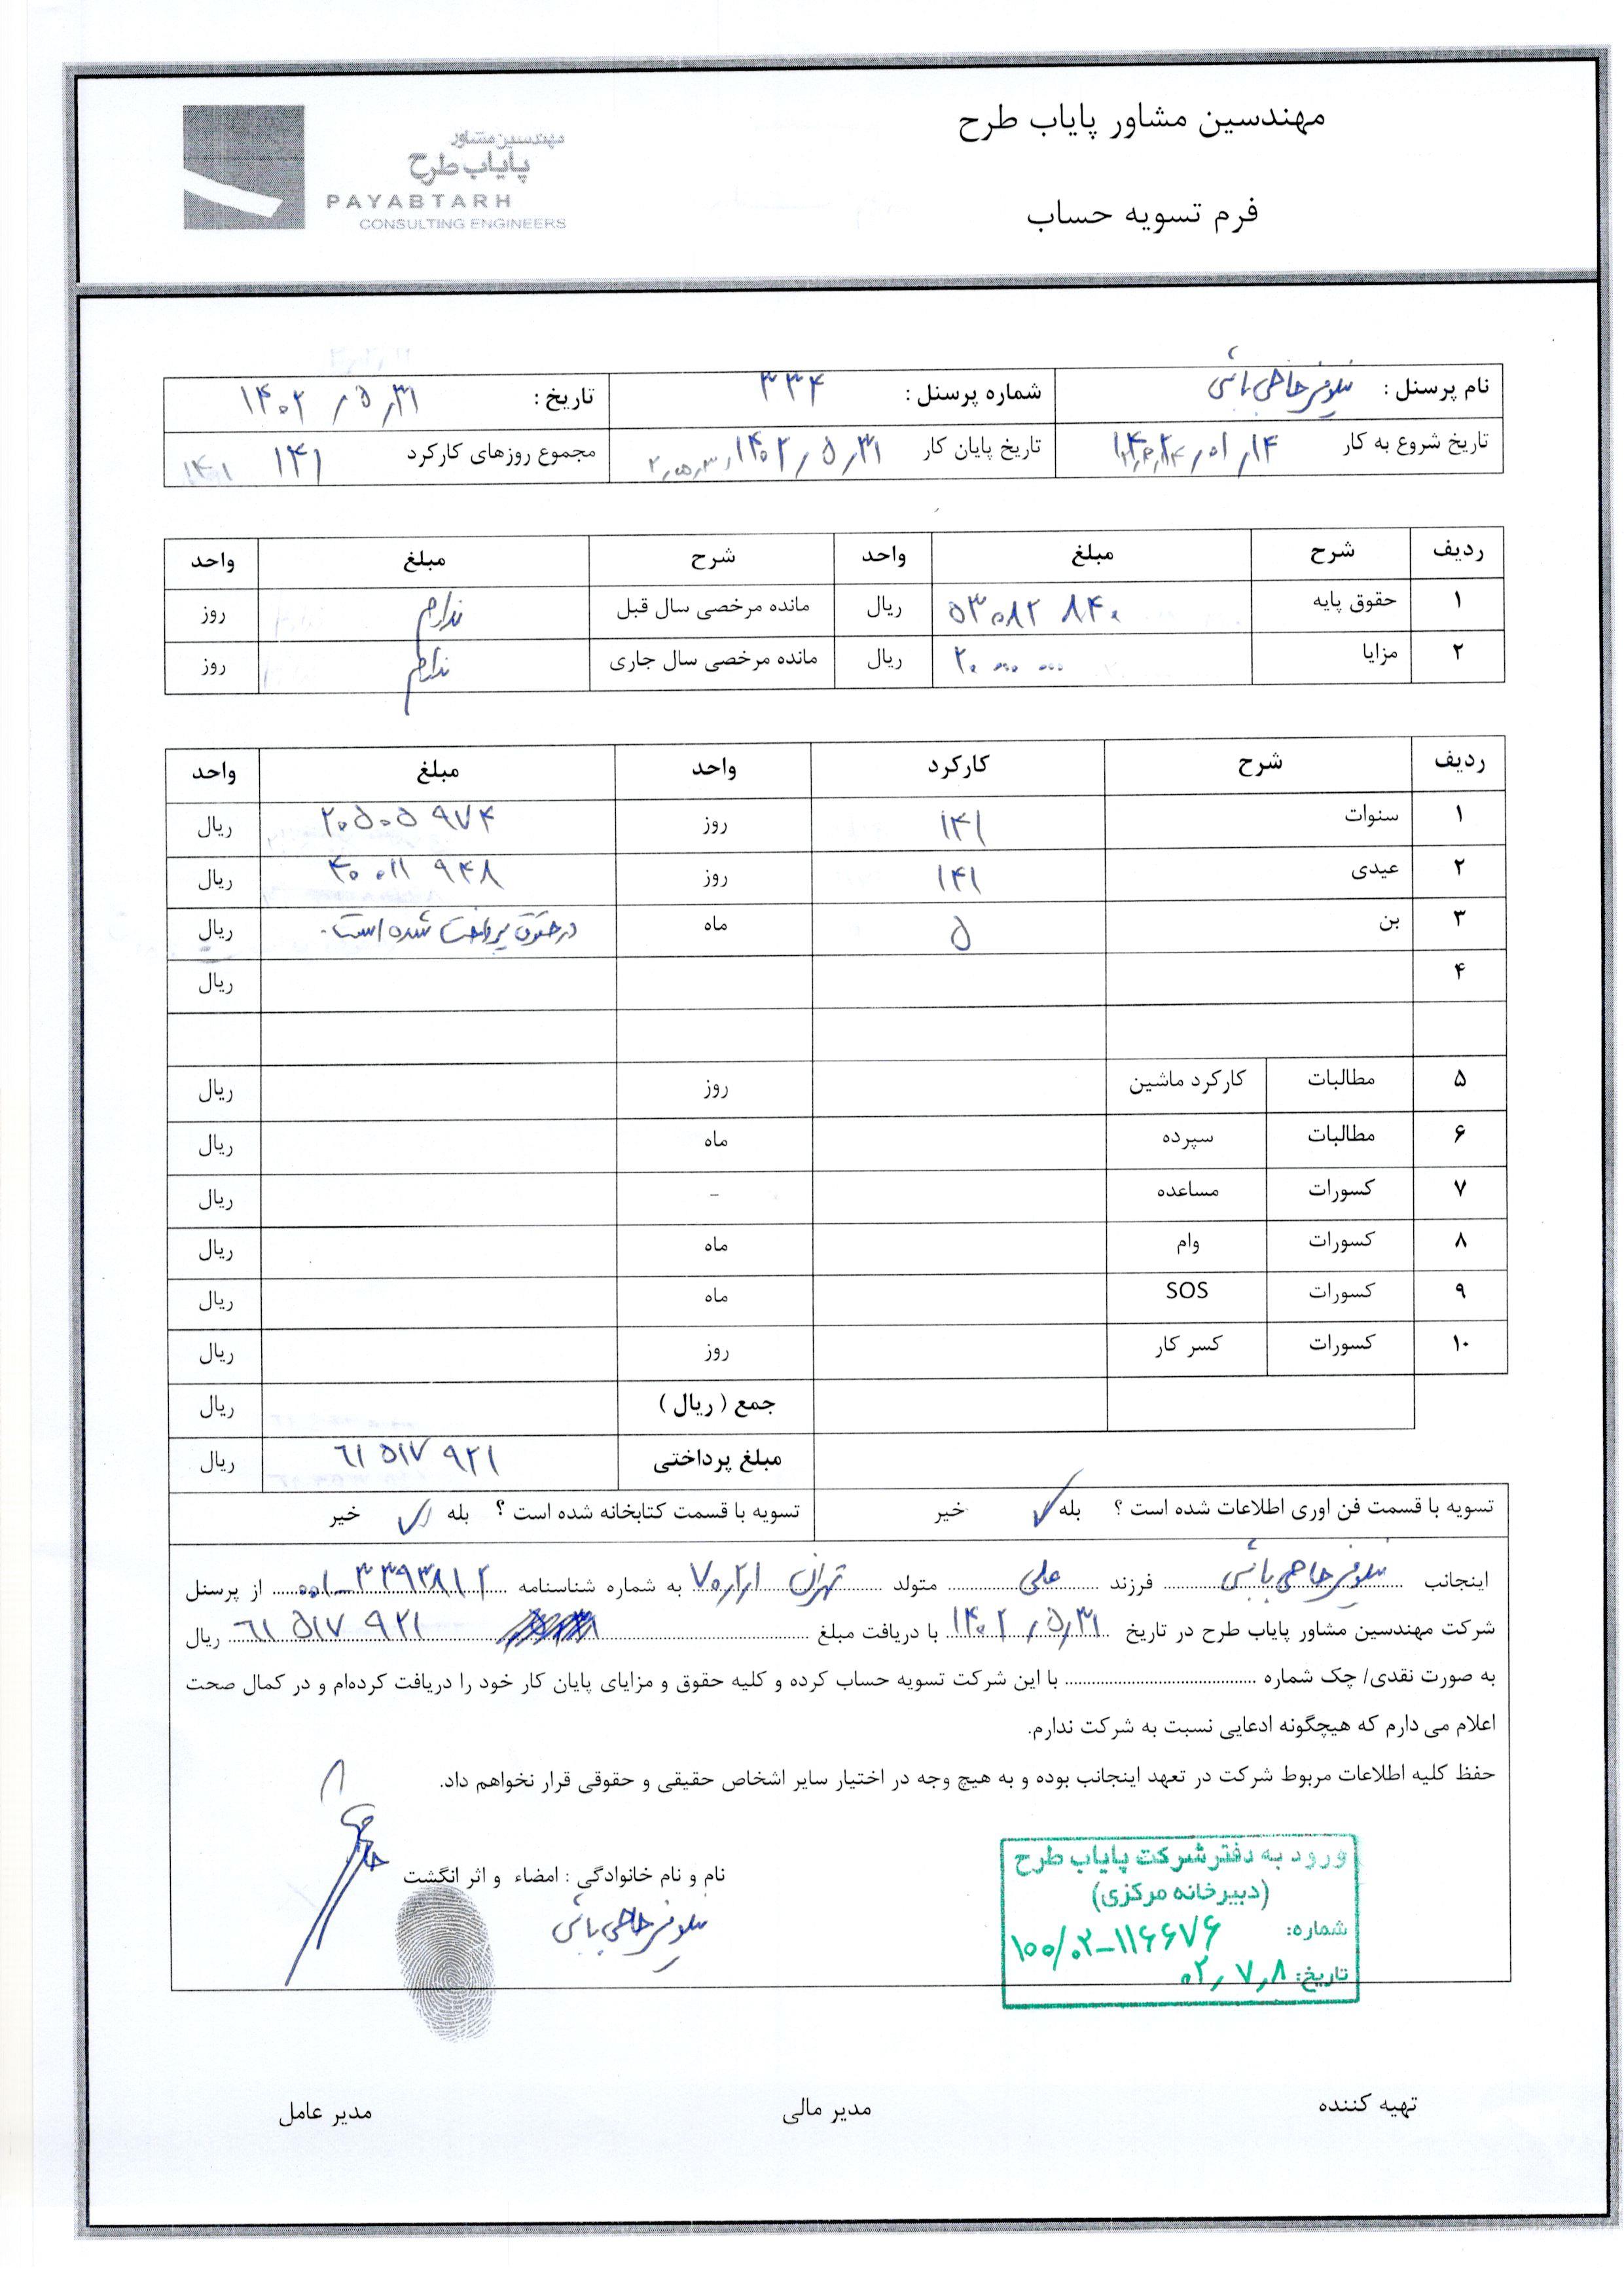 مهندسین مشاور پایاب طرح
فرم تسویه حساب
مهندسین مشاور
پایاب طرح
PAYABTARH
CONSULTING ENGINEERS
نام پرسنل : نیلوفر حاجی باشی شماره پرسنل : ۳۳۴ تاریخ : ۱۴۰۲/۵/۳۱
تاریخ شروع به کار ۱۴۰۲/۰۱/۱۴ تاریخ پایان کار ۱۴۰۲/۵/۳۱ مجموع روزهای کارکرد ۱۴۱ ۱۴۱
ردیف شرح مبلغ واحد شرح مبلغ واحد
۱ حقوق پایه ۵۳۰۸۲۸۴۰ ریال مانده مرخصی سال قبل ندارم روز
۲ مزایا ۲۰ ۰۰۰ ۰۰۰ ریال مانده مرخصی سال جاری ندارم روز
ردیف شرح کارکرد واحد مبلغ واحد
۱ سنوات ۱۴۱ روز ۲۰۵۰۵۹۷۴ ریال
۲ عیدی ۱۴۱ روز ۴۰۰۱۱۹۴۸ ریال
۳ بن ۵ ماه در حقوق پرداخت شده است. ریال
۴ ریال
۵ مطالبات کارکرد ماشین روز ریال
۶ مطالبات سپرده ماه ریال
۷ کسورات مساعده - ریال
۸ کسورات وام ماه ریال
۹ کسورات SOS ماه ریال
۱۰ کسورات کسر کار روز ریال
جمع ( ریال ) ریال
مبلغ پرداختی ۶۱۵۱۷۹۲۱ ریال
تسویه با قسمت فن اوری اطلاعات شده است ؟ بله ✓ خیر تسویه با قسمت کتابخانه شده است ؟ بله ✓ خیر
اینجانب نیلوفر حاجی باشی فرزند علی متولد تهران ۷۰/۲/۱ به شماره شناسنامه ۰۰۱-۳۳۹۳۸۱۲ از پرسنل
شرکت مهندسین مشاور پایاب طرح در تاریخ ۱۴۰۲/۵/۳۱ با دریافت مبلغ ۶۱۵۱۷۹۲۱ ریال
به صورت نقدی/ چک شماره با این شرکت تسویه حساب کرده و کلیه حقوق و مزایای پایان کار خود را دریافت کرده‌ام و در کمال صحت
اعلام می دارم که هیچگونه ادعایی نسبت به شرکت ندارم.
حفظ کلیه اطلاعات مربوط شرکت در تعهد اینجانب بوده و به هیچ وجه در اختیار سایر اشخاص حقیقی و حقوقی قرار نخواهم داد.
نام و نام خانوادگی : امضاء و اثر انگشت
نیلوفر حاجی باشی
ورود به دفتر شرکت پایاب طرح
(دبیرخانه مرکزی)
شماره: ۱۰۰/۰۲-۱۱۶۶۷۶
تاریخ: ۰۲/۷/۸
تهیه کننده مدیر مالی مدیر عامل